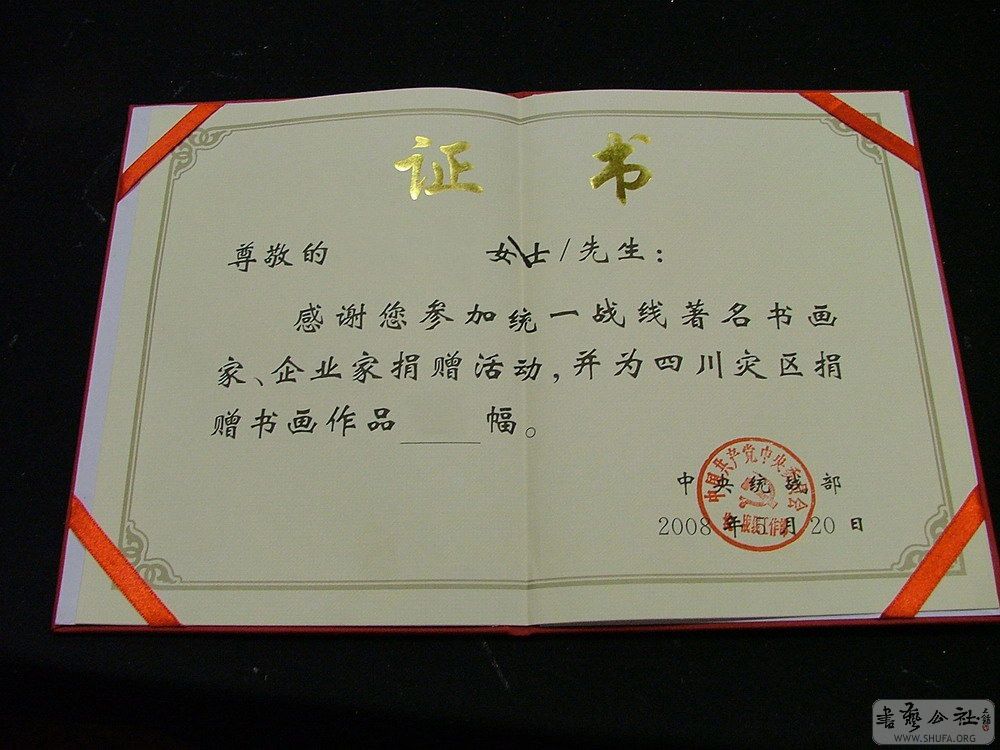 证 书
尊敬的 女士/先生：
感谢您参加统一战线著名书画
家、企业家捐赠活动，并为四川灾区捐
赠书画作品____幅。
中央统战部
2008年5月20日
中国共产党中央委员会
统一战线工作部
書藝公社
WWW.SHUFA.ORG